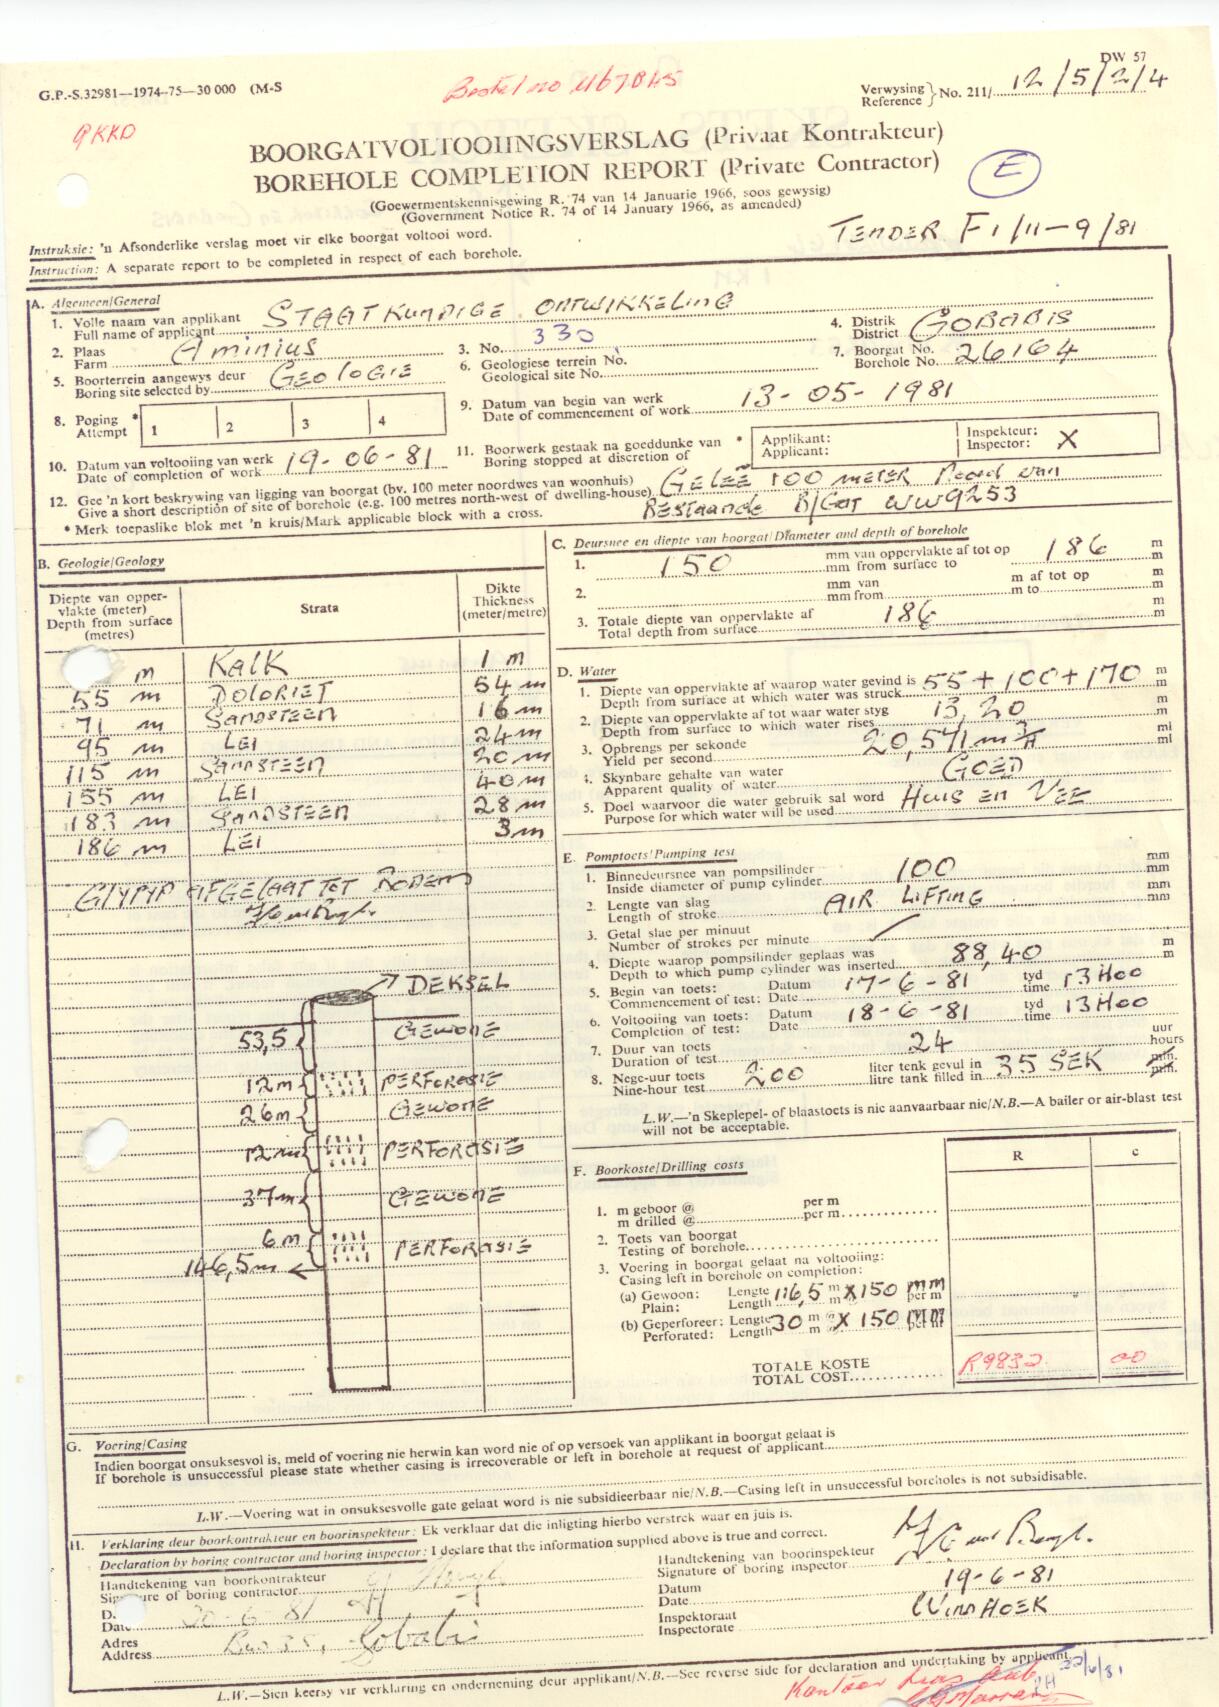 DW 57
G.P.-S.32981—1974-75—30 000 (M-S
Bestel no
Verwysing
Reference } No. 211/ 12/5/2/4
BOORGATVOLTOOIINGSVERSLAG (Privaat Kontrakteur)
BOREHOLE COMPLETION REPORT (Private Contractor)
E
(Goewermentskennisgewing R. 74 van 14 Januarie 1966, soos gewysig)
(Government Notice R. 74 of 14 January 1966, as amended)
TENDER F1/11-9/81
Instruksie: 'n Afsonderlike verslag moet vir elke boorgat voltooi word.
Instruction: A separate report to be completed in respect of each borehole.
A. Algemeen/General
1. Volle naam van applikant
Full name of applicant STAATKUNDIGE ONTWIKKELING
2. Plaas
Farm Aminius
3. No. 330
4. Distrik
District GOBABIS
5. Boorterrein aangewys deur
Boring site selected by GEOLOGIE
6. Geologiese terrein No.
Geological site No.
7. Boorgat No.
Borehole No. 26164
8. Poging *
Attempt
1 2 3 4
9. Datum van begin van werk
Date of commencement of work 13-05-1981
10. Datum van voltooiing van werk
Date of completion of work 19-06-81
11. Boorwerk gestaak na goeddunke van *
Boring stopped at discretion of
Applikant:
Applicant:
Inspekteur:
Inspector: X
12. Gee 'n kort beskrywing van ligging van boorgat (bv. 100 meter noordwes van woonhuis)
Give a short description of site of borehole (e.g. 100 metres north-west of dwelling-house) GELEË 100 METER Noord van
BESTAANDE B/GAT WW9253
* Merk toepaslike blok met 'n kruis/Mark applicable block with a cross.
B. Geologie/Geology
Diepte van opper-
vlakte (meter)
Depth from surface
(metres)
Strata
Dikte
Thickness
(meter/metre)
m KALK 1 m
55 m DOLORIET 54 m
71 m SANDSTEEN 16 m
95 m LEI 24 m
115 m SANDSTEEN 20 m
155 m LEI 40 m
183 m SANDSTEEN 28 m
186 m LEI 3 m
AFGELAAT TOT BODEM
DEKSEL
53,5 GEWONE
12m PERFORASIE
26m GEWONE
12m PERFORASIE
37m GEWONE
6m PERFORASIE
146,5m
C. Deursnee en diepte van boorgat/Diameter and depth of borehole
1. 150 mm van oppervlakte af tot op 186 m
mm from surface to m
2. mm van m af tot op m
mm from m to m
3. Totale diepte van oppervlakte af m
Total depth from surface 186 m
D. Water
1. Diepte van oppervlakte af waarop water gevind is 55+100+170 m
Depth from surface at which water was struck m
2. Diepte van oppervlakte af tot waar water styg 13,20 m
Depth from surface to which water rises m
3. Opbrengs per sekonde ml
Yield per second 20,571 m³/H ml
4. Skynbare gehalte van water
Apparent quality of water GOED
5. Doel waarvoor die water gebruik sal word
Purpose for which water will be used HUIS EN VEE
E. Pomptoets/Pumping test
1. Binnedeursnee van pompsilinder mm
Inside diameter of pump cylinder 100 mm
2. Lengte van slag mm
Length of stroke AIR LIFTING mm
3. Getal slae per minuut
Number of strokes per minute
4. Diepte waarop pompsilinder geplaas was m
Depth to which pump cylinder was inserted 88,40 m
5. Begin van toets: Datum tyd
Commencement of test: Date 17-6-81 time 13H00
6. Voltooiing van toets: Datum tyd
Completion of test: Date 18-6-81 time 13H00
7. Duur van toets uur
Duration of test 24 hours
8. Nege-uur toets liter tenk gevul in min.
Nine-hour test 200 litre tank filled in 35 SEK min.
L.W.—'n Skeplepel- of blaastoets is nie aanvaarbaar nie/N.B.—A bailer or air-blast test
will not be acceptable.
F. Boorkoste/Drilling costs
R c
1. m geboor @ per m
m drilled @ per m
2. Toets van boorgat
Testing of borehole
3. Voering in boorgat gelaat na voltooiing:
Casing left in borehole on completion:
(a) Gewoon: Lengte 116,5 m X 150 mm
Plain: Length m per m
(b) Geperforeer: Lengte 30 m @ X 150 mm
Perforated: Length m per m
TOTALE KOSTE
TOTAL COST R9832 00
G. Voering/Casing
Indien boorgat onsuksesvol is, meld of voering nie herwin kan word nie of op versoek van applikant in boorgat gelaat is
If borehole is unsuccessful please state whether casing is irrecoverable or left in borehole at request of applicant
L.W.—Voering wat in onsuksesvolle gate gelaat word is nie subsidieerbaar nie/N.B.—Casing left in unsuccessful boreholes is not subsidisable.
H. Verklaring deur boorkontrakteur en boorinspekteur: Ek verklaar dat die inligting hierbo verstrek waar en juis is.
Declaration by boring contractor and boring inspector: I declare that the information supplied above is true and correct.
Handtekening van boorkontrakteur
Signature of boring contractor
Handtekening van boorinspekteur
Signature of boring inspector
Date 20-6-81
Datum
Date 19-6-81
Adres
Address Gobabis
Inspektoraat
Inspectorate WINDHOEK
L.W.—Sien keersy vir verklaring en onderneming deur applikant/N.B.—See reverse side for declaration and undertaking by applicant
Kantoor